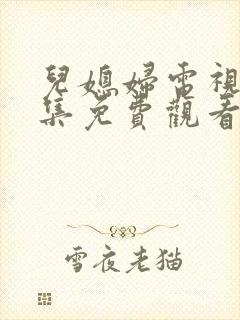 兒媳婦電視
集免費觀看
雪夜老猫